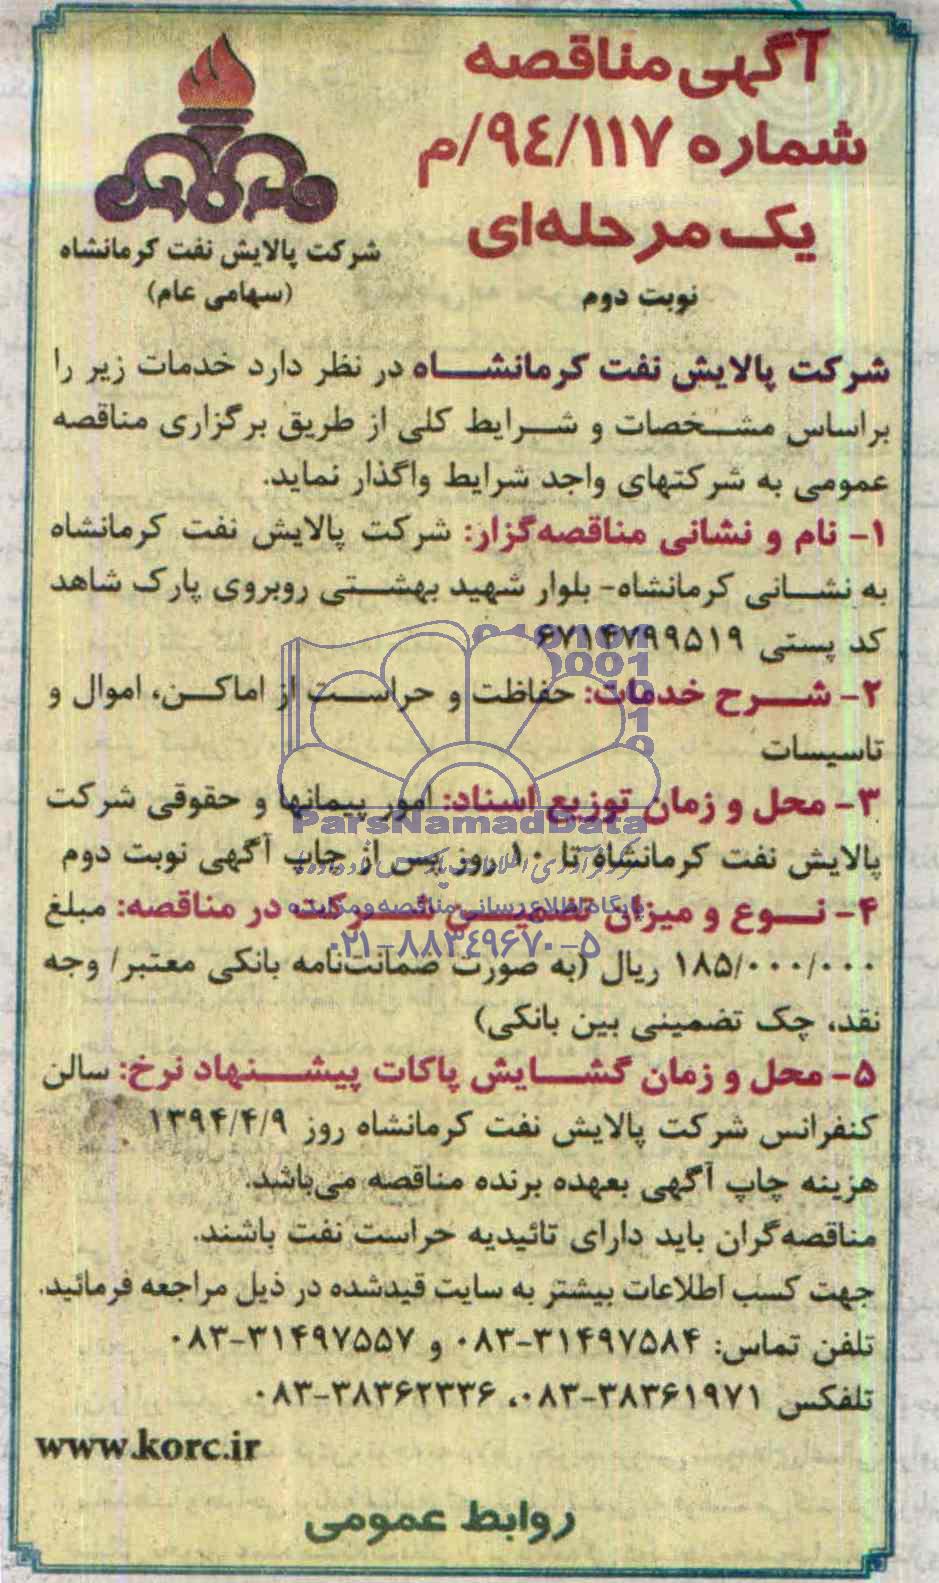 آگهی مناقصه
شماره ۹۴/۱۱۷/م
یک مرحله‌ای
نوبت دوم
شرکت پالایش نفت کرمانشاه
(سهامی عام)
شرکت پالایش نفت کرمانشاه در نظر دارد خدمات زیر را
براساس مشخصات و شرایط کلی از طریق برگزاری مناقصه
عمومی به شرکتهای واجد شرایط واگذار نماید.
۱- نام و نشانی مناقصه‌گزار: شرکت پالایش نفت کرمانشاه
به نشانی کرمانشاه- بلوار شهید بهشتی روبروی پارک شاهد
کد پستی ۶۷۱۴۷۹۹۵۱۹
۲- شرح خدمات: حفاظت و حراست از اماکن، اموال و
تاسیسات
۳- محل و زمان توزیع اسناد: امور پیمانها و حقوقی شرکت
پالایش نفت کرمانشاه تا ۱۰ روز پس از چاپ آگهی نوبت دوم
۴- نوع و میزان تضمین شرکت در مناقصه: مبلغ
۱۸۵/۰۰۰/۰۰۰ ریال (به صورت ضمانت‌نامه بانکی معتبر/ وجه
نقد، چک تضمینی بین بانکی)
۵- محل و زمان گشایش پاکات پیشنهاد نرخ: سالن
کنفرانس شرکت پالایش نفت کرمانشاه روز ۱۳۹۴/۴/۹
هزینه چاپ آگهی بعهده برنده مناقصه می‌باشد.
مناقصه‌گران باید دارای تائیدیه حراست نفت باشند.
جهت کسب اطلاعات بیشتر به سایت قیدشده در ذیل مراجعه فرمائید.
تلفن تماس: ۳۱۴۹۷۵۸۴-۰۸۳ و ۳۱۴۹۷۵۵۷-۰۸۳
تلفکس ۳۸۳۶۱۹۷۱-۰۸۳، ۳۸۳۶۲۳۳۶-۰۸۳
www.korc.ir
روابط عمومی
ParsNamadData
پایگاه اطلاع رسانی مناقصه و مزایده
۰۲۱-۸۸۳۴۹۶۷۰-۵